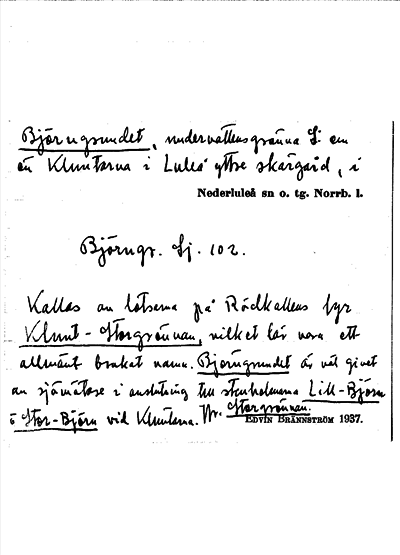 Björngrundet, undervattensgrünna S: om
ön Kluntarna i Luleå yttre skärgård, i
Nederluleå sn o. tg. Norrb. l.
Björngr. Sj. 102.
Kallas av lotsarna på Rödkallens fyr
Klunt-Storgrönnan, vilket lär vara ett
allmänt brukat namn. Björngrundet är väl givet
av sjömätare i anslutning till stenholmarna Lill-Björn
o Stor-Björn vid Kluntarna. Jfr. Storgrönnan.
EDVIN BRÄNNSTRÖM 1937.